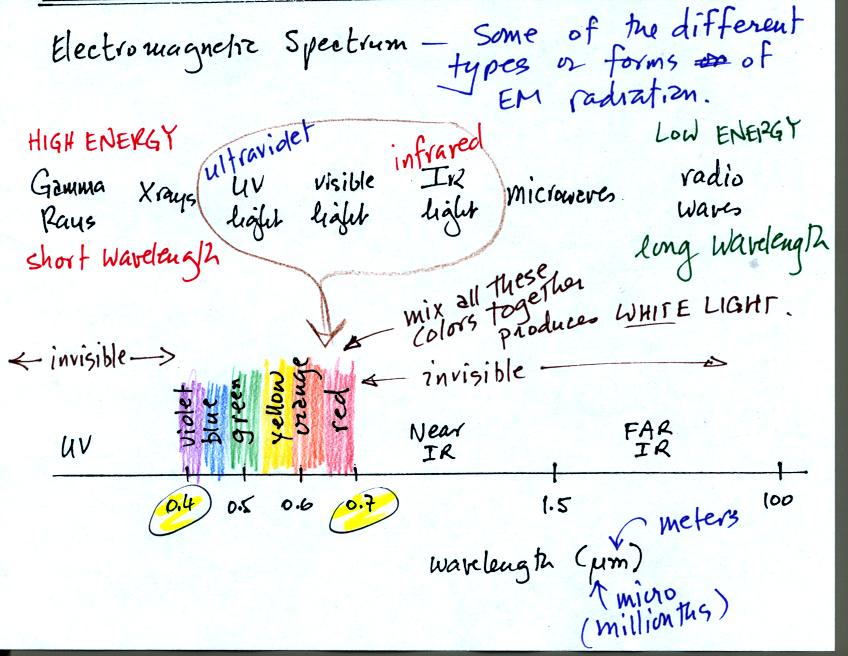 Electromagnetic Spectrum — Some of the different
types or forms of
EM radiation.
HIGH ENERGY
ultraviolet
infrared
LOW ENERGY
Gamma
Rays
Xrays
UV
light
visible
light
IR
light
microwaves
radio
waves
short wavelength
long wavelength
mix all these
colors together
produces WHITE LIGHT.
← invisible →
← invisible →
violet
blue
green
yellow
orange
red
UV
Near
IR
FAR
IR
0.4 0.5 0.6 0.7 1.5 100
meters
wavelength (μm)
micro
(millionths)